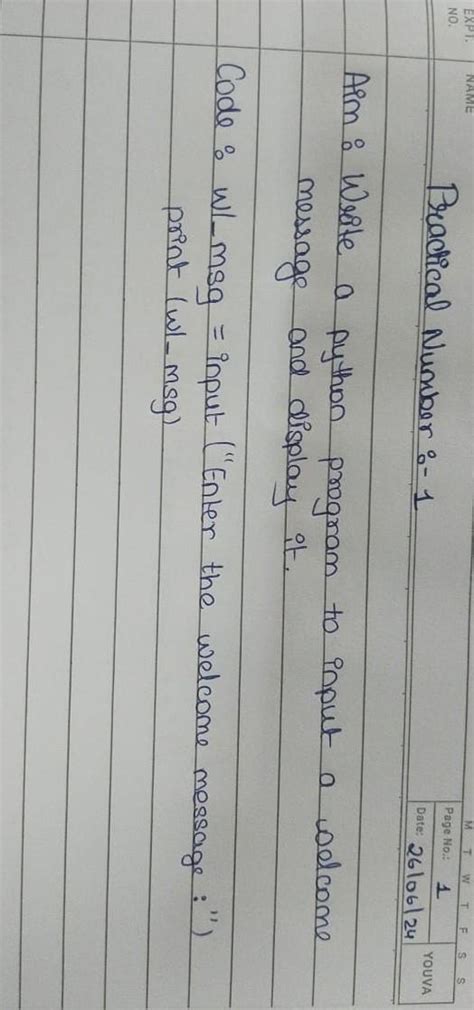 EXPT. NO.
NAME
M T W T F S S
Page No.: 1
Date: 26/06/24
YOUVA
Practical Number :- 1
Aim : Write a python program to input a welcome
message and display it.
Code : wl_msg = input ("Enter the welcome message :")
print (wl_msg)